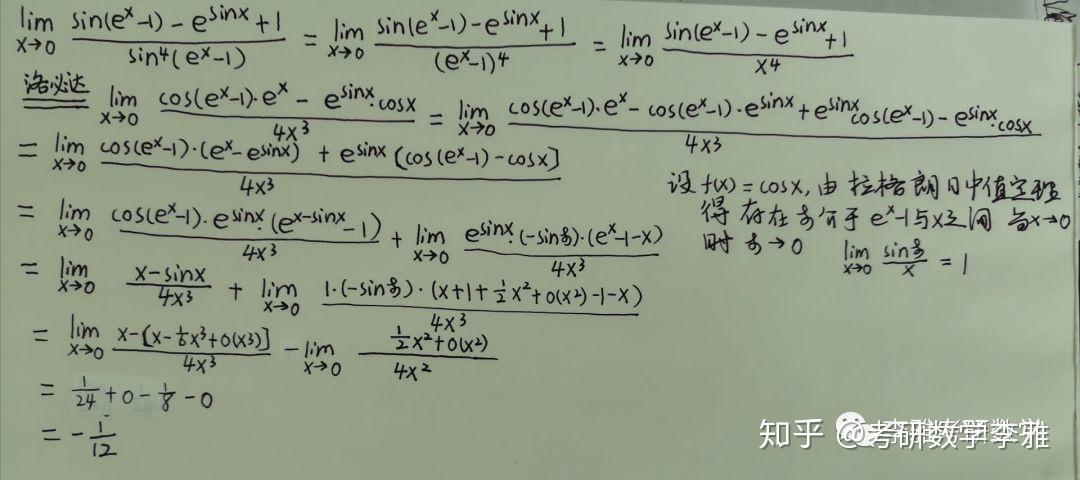 lim x→0 (sin(e^x-1) - e^sinx + 1)/(sin⁴(e^x-1)) = lim x→0 (sin(e^x-1) - e^sinx + 1)/((e^x-1)⁴) = lim x→0 (sin(e^x-1) - e^sinx + 1)/(x⁴)
洛必达 lim x→0 (cos(e^x-1)·e^x - e^sinx·cosx)/(4x³) = lim x→0 (cos(e^x-1)·e^x - cos(e^x-1)·e^sinx + e^sinx cos(e^x-1) - e^sinx·cosx)/(4x³)
= lim x→0 (cos(e^x-1)·(e^x - e^sinx) + e^sinx [cos(e^x-1) - cosx])/(4x³)
= lim x→0 (cos(e^x-1)·e^sinx·(e^(x-sinx) - 1))/(4x³) + lim x→0 (e^sinx·(-sinξ)·(e^x-1-x))/(4x³)
= lim x→0 (x-sinx)/(4x³) + lim x→0 (1·(-sinξ)·(x+1+½x²+o(x²)-1-x))/(4x³)
= lim x→0 (x-[x-⅙x³+o(x³)])/(4x³) - lim x→0 (½x²+o(x²))/(4x²)
= 1/24 + 0 - 1/8 - 0
= - 1/12
设 f(x) = cosx, 由拉格朗日中值定理
得 存在ξ介于 e^x-1与x之间 当x→0
时 ξ→0 lim x→0 sinξ/x = 1
知乎 @考研数学李雅